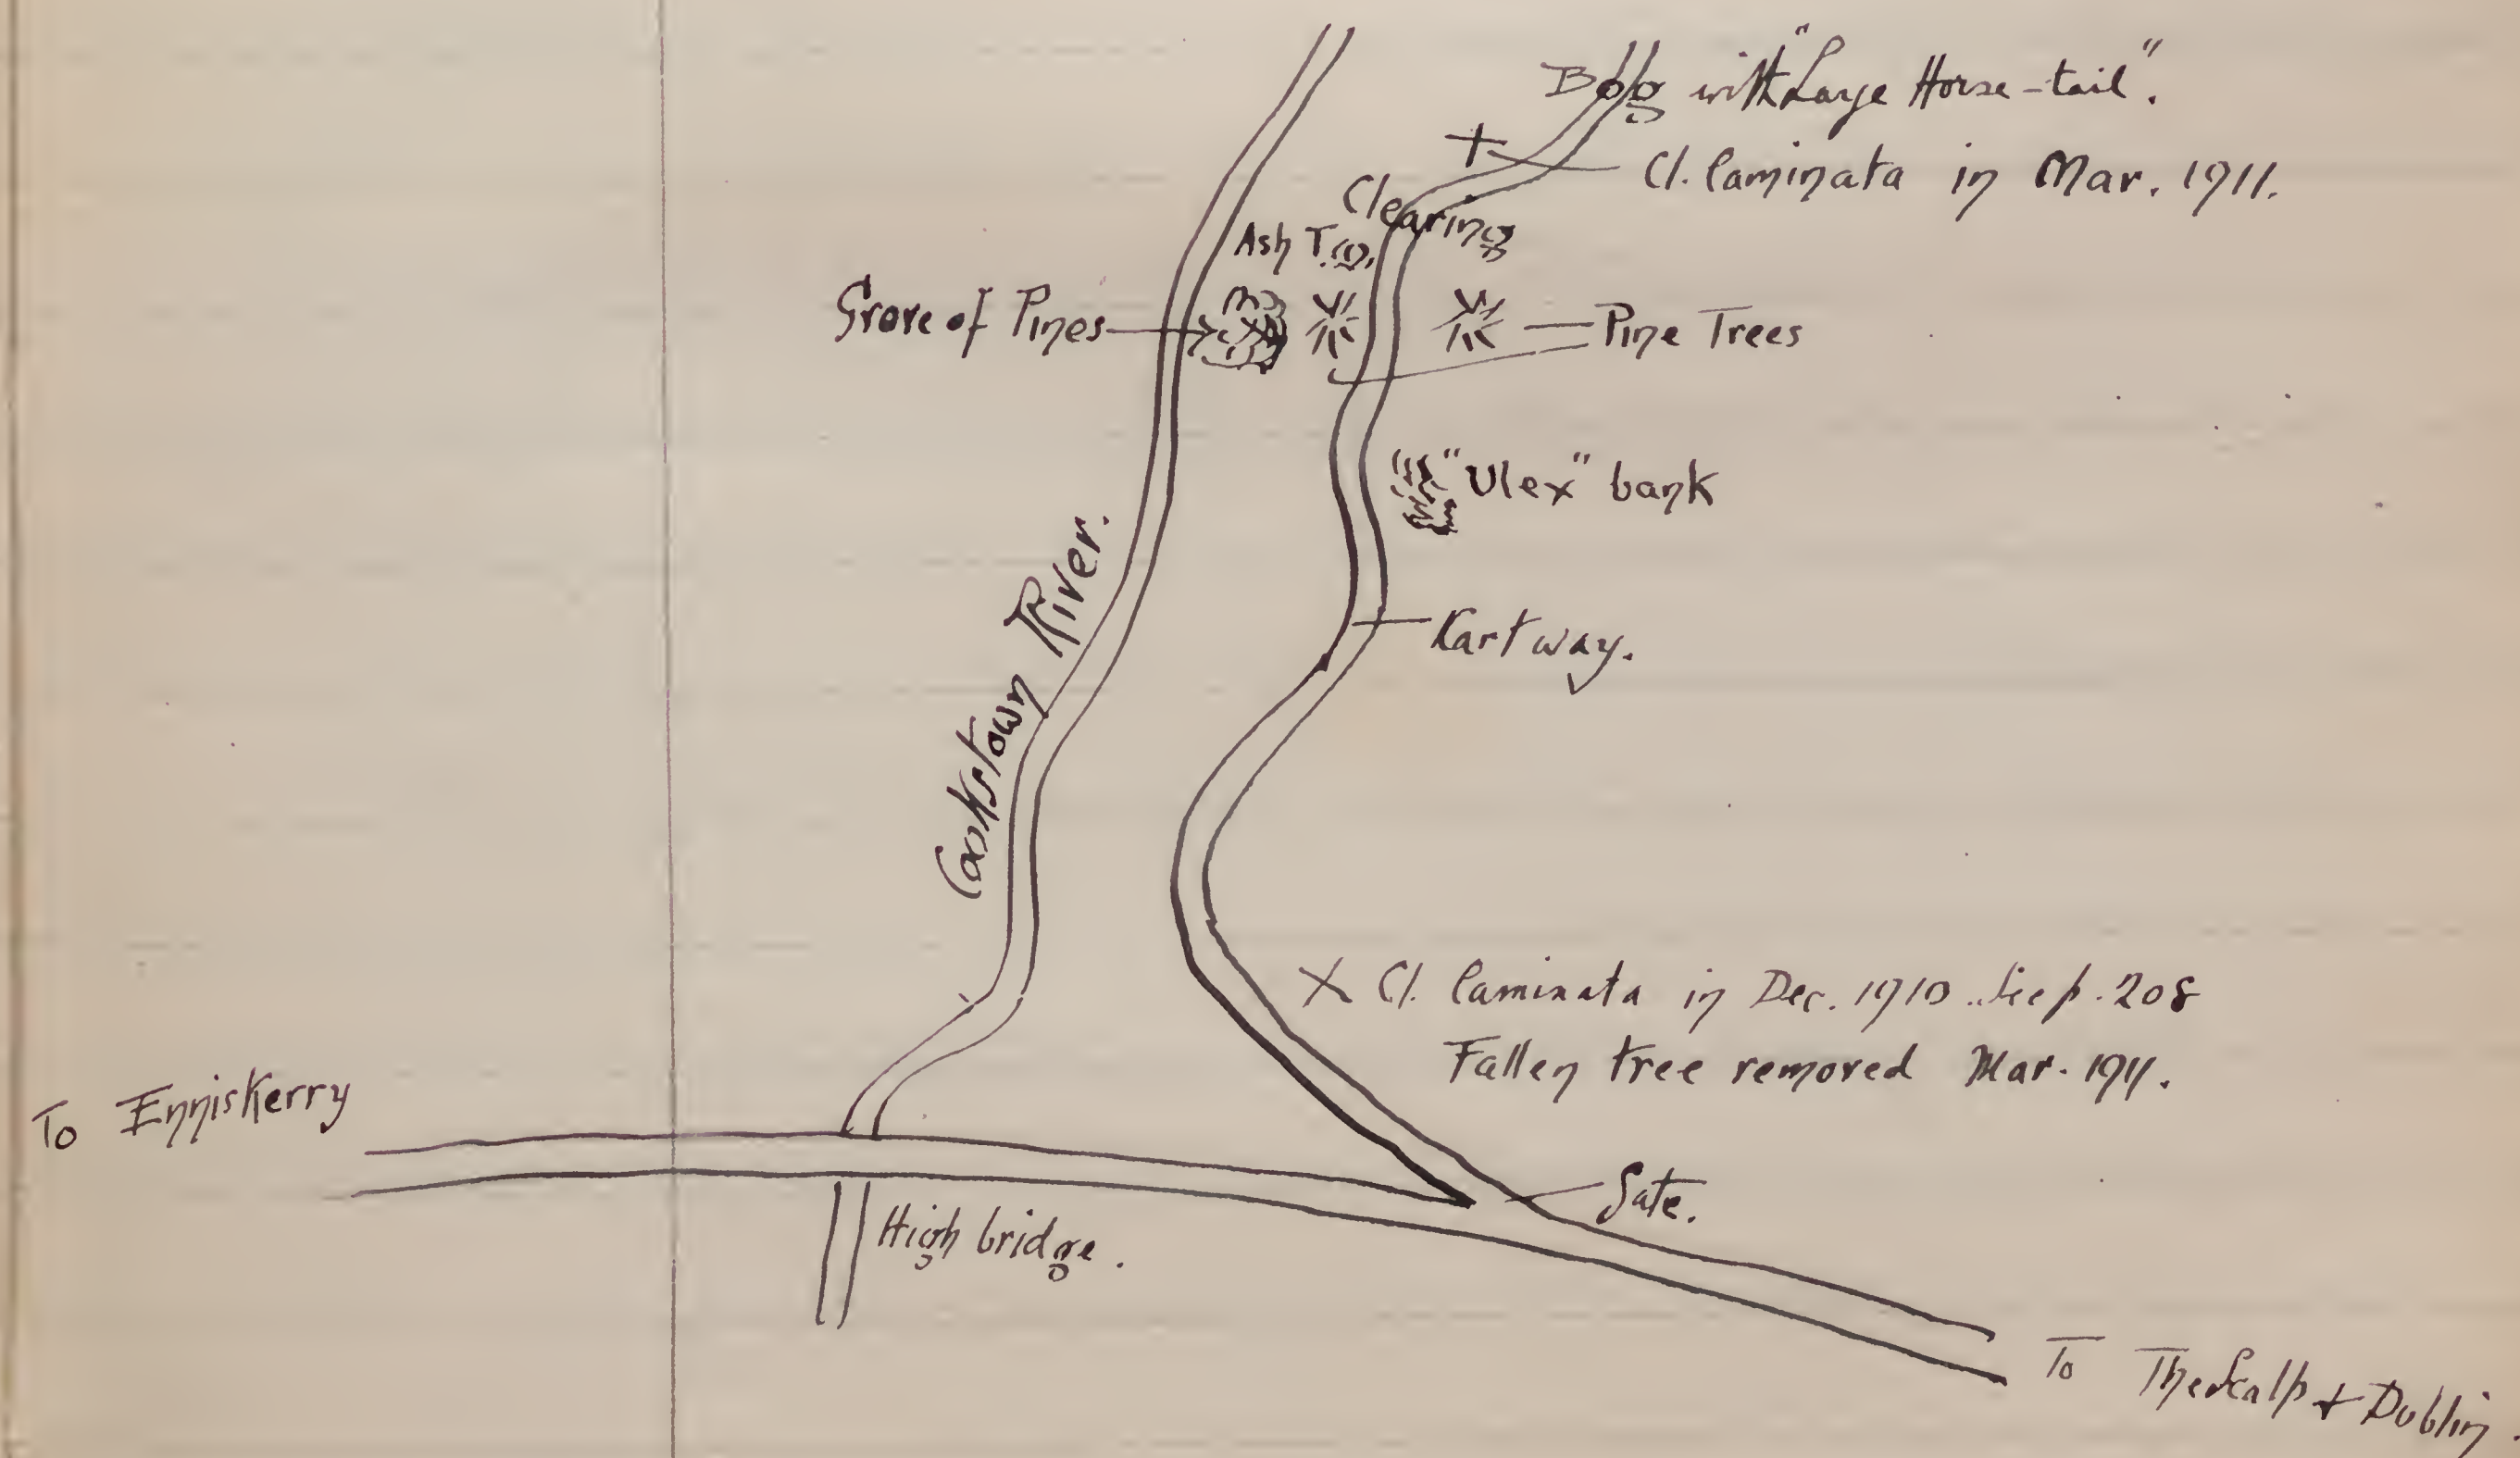 Bog with "Large Horse-tail".
Cl. laminata in Mar. 1911.
Clearing
Ash
Grove of Pines
Pine Trees
"Ulex" bank
Kartway.
Cookstown River.
X Cl. laminata in Dec. 1910. See p. 208
Fallen tree removed Mar. 1911.
To Enniskerry
Gate.
High bridge.
To The Scalp + Dublin.